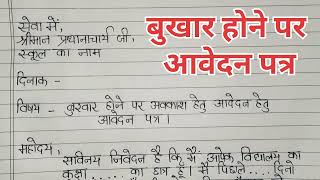 सेवा में,
श्रीमान प्रधानाचार्य जी,
स्कूल का नाम
बुखार होने पर
आवेदन पत्र
दिनांक -
विषय - बुखार होने पर अवकाश हेतु आवेदन हेतु
आवेदन पत्र ।
महोदय,
सविनय निवेदन है कि मैं आपके विद्यालय का
कक्षा ..... का छात्र हूँ । मैं पिछले .... दिनों